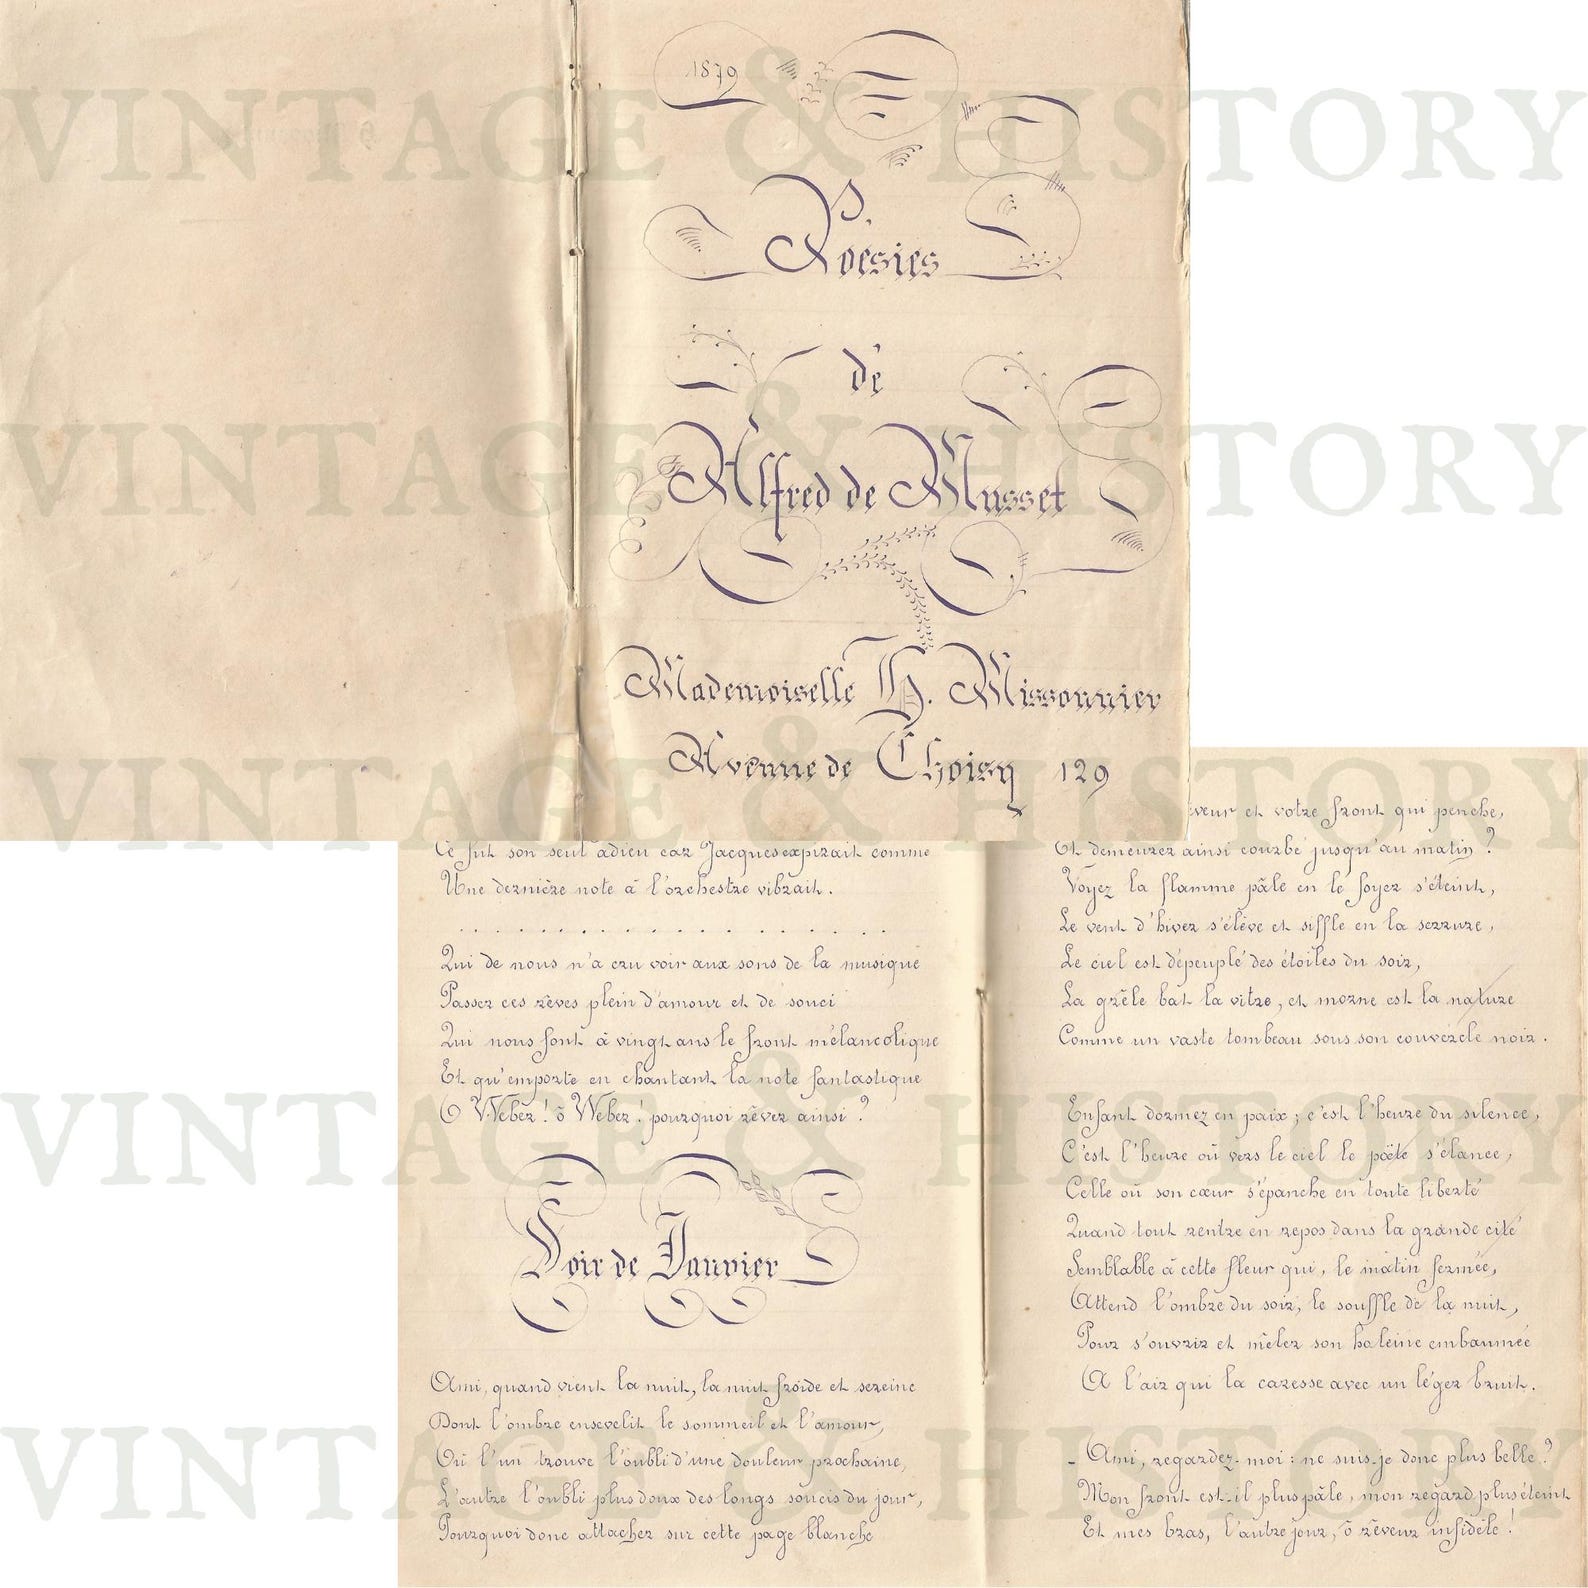 1879
Poésies
de
Alfred de Musset
Mademoiselle H. Missonnier
Avenue de Choisy 129
Ce fut son seul adieu car Jacques expirait comme
Une dernière note à l'orchestre vibrait.
. . . . . . . . . . . . . . . . . .
Qui de nous n'a cru voir aux sons de la musique
Passer ces rêves plein d'amour et de souci
Qui nous font à vingt ans le front mélancolique
Et qu'emporte en chantant la note fantastique
O Weber ! ô Weber ! pourquoi rêver ainsi ?
Soir de Janvier
Ami, quand vient la nuit, la nuit froide et sereine
Dont l'ombre ensevelit le sommeil et l'amour,
Où l'un trouve l'oubli d'une douleur prochaine,
L'autre l'oubli plus doux des longs soucis du jour,
Pourquoi donc attacher sur cette page blanche
et votre front qui penche,
Et demeurer ainsi courbé jusqu'au matin ?
Voyez la flamme pâle en le foyer s'éteint,
Le vent d'hiver s'élève et siffle en la serrure,
Le ciel est dépeuplé des étoiles du soir,
La grêle bat la vitre, et morne est la nature
Comme un vaste tombeau sous son couvercle noir.
Enfant dormez en paix ; c'est l'heure du silence,
C'est l'heure où vers le ciel le poëte s'élance,
Celle où son cœur s'épanche en toute liberté
Quand tout rentre en repos dans la grande cité
Semblable à cette fleur qui, le matin fermée,
Attend l'ombre du soir, le souffle de la nuit,
Pour s'ouvrir et mêler son haleine embaumée
A l'air qui la caresse avec un léger bruit.
- Ami, regardez-moi : ne suis-je donc plus belle ?
Mon front est-il plus pâle, mon regard plus éteint
Et mes bras, l'autre jour, ô rêveur infidèle !
VINTAGE & HISTORY
VINTAGE & HISTORY
VINTAGE & HISTORY
VINTAGE & HISTORY
VINTAGE & HISTORY